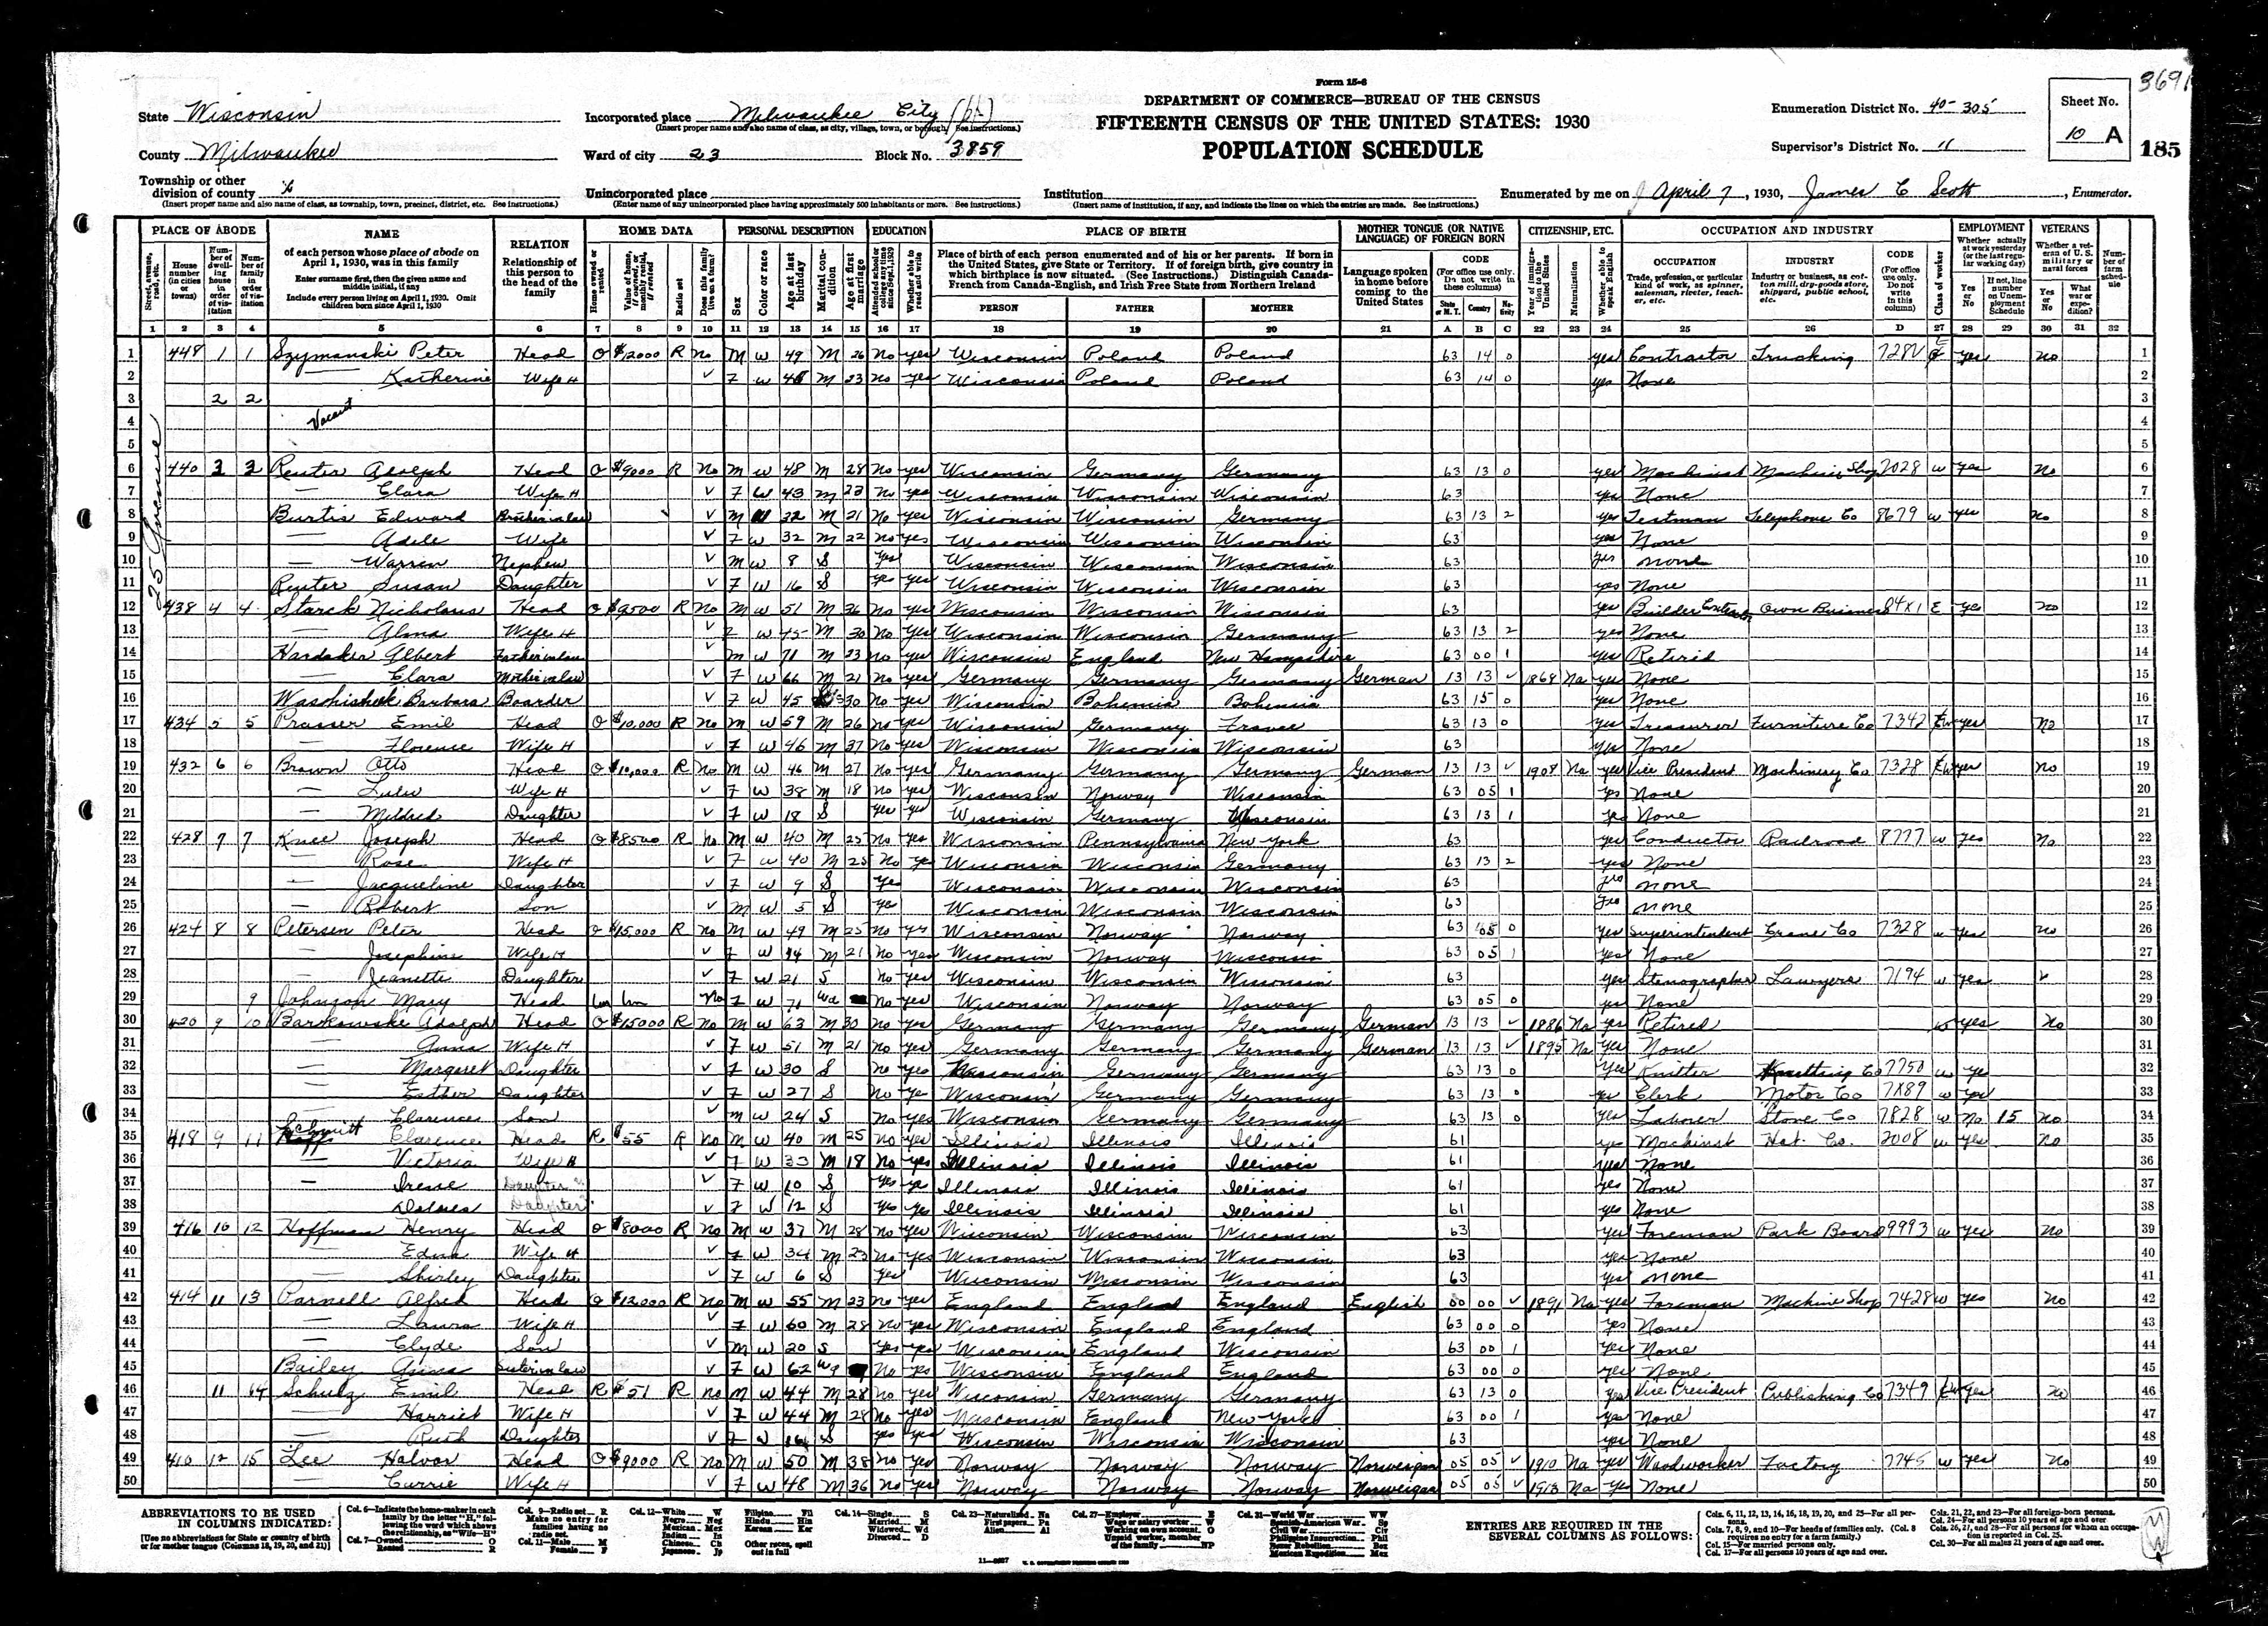 Form 15-6
3691
State Wisconsin
Incorporated place Milwaukee City
(Insert proper name and also name of class, as city, village, town, or borough. See instructions.)
DEPARTMENT OF COMMERCE—BUREAU OF THE CENSUS
FIFTEENTH CENSUS OF THE UNITED STATES: 1930
POPULATION SCHEDULE
Enumeration District No. 40-305
Sheet No.
10 A
185
County Milwaukee
Ward of city 23 Block No. 3859
Supervisor's District No. 11
Township or other division of county
(Insert proper name and also name of class, as township, town, precinct, district, etc. See instructions.)
Unincorporated place
(Enter name of any unincorporated place having approximately 500 inhabitants or more. See instructions.)
Institution
(Insert name of institution, if any, and indicate the lines on which the entries are made. See instructions.)
Enumerated by me on April 7, 1930, James C Scott, Enumerator.
PLACE OF ABODE NAME RELATION HOME DATA PERSONAL DESCRIPTION EDUCATION PLACE OF BIRTH MOTHER TONGUE (OR NATIVE LANGUAGE) OF FOREIGN BORN CITIZENSHIP, ETC. OCCUPATION AND INDUSTRY EMPLOYMENT VETERANS
PERSON FATHER MOTHER
1 2 3 4 5 6 7 8 9 10 11 12 13 14 15 16 17 18 19 20 21 A B C 22 23 24 25 26 D 27 28 29 30 31 32
25 Avenue
1 448 1 1 Szymanski Peter Head O $12000 R No M W 49 M 26 No yes Wisconsin Poland Poland 63 14 0 yes Contractor Trucking yes no 1
2 Katherine Wife H ✓ F W M 23 no yes Wisconsin Poland Poland 63 14 0 yes None 2
3 2 2 Vacant 3
4 4
5 5
6 440 3 3 Reuter Adolph Head O $9000 R No M W 48 M 28 No yes Wisconsin Germany Germany 63 13 0 yes Machinist Machine Shop 7028 W yes No 6
7 — Clara Wife H ✓ F W 43 M 23 No yes Wisconsin Wisconsin Wisconsin 63 yes None 7
8 Burtis Edward Brotherinlaw ✓ M W 32 M 21 No yes Wisconsin Wisconsin Germany 63 13 2 yes Testman Telephone Co 8679 W yes No 8
9 — Adele Wife ✓ F W 32 M 22 no yes Wisconsin Wisconsin Wisconsin 63 yes None 9
10 — Warren Nephew ✓ M W 8 S yes Wisconsin Wisconsin Wisconsin 63 yes none 10
11 Reuter Susan Daughter ✓ F W 16 S yes yes Wisconsin Wisconsin Wisconsin 63 yes None 11
12 438 4 4 Starck Nicholaus Head O $9500 R No M W 51 M 36 No yes Wisconsin Wisconsin Wisconsin 63 yes Builder Contractor Own Business 84X1 E yes no 12
13 — Alma Wife H ✓ F W 45 M 30 No yes Wisconsin Wisconsin Germany 63 13 2 yes None 13
14 Hardaker Albert Fatherinlaw ✓ M W 71 M 23 no yes Wisconsin England New Hampshire 63 00 1 yes Retired 14
15 — Clara Motherinlaw ✓ F W 66 M 21 No yes Germany Germany Germany German 13 13 ✓ 1868 Na yes None 15
16 Barbara Boarder ✓ F W 45 30 No yes Wisconsin Bohemia Bohemia 63 15 0 yes None 16
17 434 5 5 Prasser Emil Head O $10,000 R no M W 59 M 26 no yes Wisconsin Germany France 63 13 0 yes Treasurer Furniture Co 7342 yes No 17
18 — Florence Wife H ✓ F W 46 M 37 No yes Wisconsin Wisconsin Wisconsin 63 yes None 18
19 432 6 6 Brown Otto Head O $10,000 R no M W 46 M 27 no yes Germany Germany Germany German 13 13 ✓ 1908 Na yes Vice President Machinery Co 7328 yes no 19
20 — Lulu Wife H ✓ F W 38 M 18 no yes Wisconsin Norway Wisconsin 63 05 1 yes None 20
21 — Mildred Daughter ✓ F W 18 S yes yes Wisconsin Germany Wisconsin 63 13 1 yes None 21
22 428 7 7 Knee Joseph Head O $8500 R no M W 40 M 25 No yes Wisconsin Pennsylvania New York 63 yes Conductor Railroad 8777 W yes No 22
23 — Rose Wife H ✓ F W 40 M 25 No yes Wisconsin Wisconsin Germany 63 13 2 yes None 23
24 — Jacqueline Daughter ✓ F W 9 S yes Wisconsin Wisconsin Wisconsin 63 yes none 24
25 — Robert Son ✓ M W 5 S yes Wisconsin Wisconsin Wisconsin 63 yes none 25
26 424 8 8 Petersen Peter Head O $15,000 R no M W 49 M 25 No yes Wisconsin Norway Norway 63 05 0 yes Superintendent Crane Co 7328 W yes no 26
27 — Josephine Wife H ✓ F W 44 M 21 No yes Wisconsin Norway Wisconsin 63 05 1 yes None 27
28 — Jeanette Daughter ✓ F W 21 S no yes Wisconsin Wisconsin Wisconsin 63 yes Stenographer Lawyers 7194 W yes v 28
29 9 Johnson Mary Head No F W 71 Wd No yes Wisconsin Norway Norway 63 05 0 yes None 29
30 420 9 10 Barkowske Adolph Head O $15000 R No M W 63 M 30 No yes Germany Germany Germany German 13 13 ✓ 1886 Na yes Retired yes No 30
31 — Anna Wife H ✓ F W 51 M 21 no yes Germany Germany Germany German 13 13 ✓ 1895 Na yes None 31
32 — Margaret Daughter ✓ F W 30 S no yes Wisconsin Germany Germany 63 13 0 yes Knitter Knitting Co 7750 W yes 32
33 — Esther Daughter ✓ F W 27 S No yes Wisconsin Germany Germany 63 13 0 yes Clerk Motor Co 7X89 W yes 33
34 — Clarence Son ✓ M W 24 S No yes Wisconsin Germany Germany 63 13 0 yes Laborer Stove Co 7828 W No 15 no 34
35 418 9 11 Schmitt Clarence Head R $55 R no M W 40 M 25 No yes Illinois Illinois Illinois 61 yes Machinist Hat. Co. 2008 W yes no 35
36 — Victoria Wife H ✓ F W 33 M 18 No yes Illinois Illinois Illinois 61 yes None 36
37 — Irene Daughter ✓ F W 10 S yes yes Illinois Illinois Illinois 61 yes None 37
38 Dolores Daughter ✓ F W 12 S yes yes Illinois Illinois Illinois 61 yes None 38
39 416 10 12 Hoffman Henry Head O $8000 R No M W 37 M 28 no yes Wisconsin Wisconsin Wisconsin 63 yes Foreman Park Board 9993 W yes No 39
40 — Edna Wife H ✓ F W 34 M 23 no yes Wisconsin Wisconsin Wisconsin 63 yes None 40
41 — Shirley Daughter ✓ F W 6 S yes Wisconsin Wisconsin Wisconsin 63 yes none 41
42 414 11 13 Parnell Alfred Head O $12,000 R No M W 55 M 23 no yes England England England English 00 00 ✓ 1891 Na yes Foreman Machine Shop 7428 W yes No 42
43 — Laura Wife H ✓ F W 60 M 28 no yes Wisconsin England England 63 00 0 yes None 43
44 — Clyde Son ✓ M W 20 S yes yes Wisconsin England Wisconsin 63 00 1 yes None 44
45 Bailey Anna Sisterinlaw ✓ F W 62 Wd No yes Wisconsin England England 63 00 0 yes None 45
46 11 14 Schulz Emil Head R $51 R no M W 44 M 28 no yes Wisconsin Germany Germany 63 13 0 yes Vice President Publishing Co 7349 yes no 46
47 — Harriet Wife H ✓ F W 44 M 28 no yes Wisconsin England New York 63 00 1 yes None 47
48 — Ruth Daughter ✓ F W 16 S yes yes Wisconsin Wisconsin Wisconsin 63 yes None 48
49 410 12 15 Lee Halvor Head O $9000 R no M W 50 M 38 no yes Norway Norway Norway Norwegian 05 05 ✓ 1910 Na yes Woodworker Factory 7745 W yes No 49
50 — Currie Wife H ✓ F W 48 M 36 no yes Norway Norway Norway Norwegian 05 05 ✓ 1913 Na yes None 50
ABBREVIATIONS TO BE USED IN COLUMNS INDICATED:
[Use no abbreviations for State or country of birth or for mother tongue (Columns 18, 19, 20, and 21)]
Col. 6—Indicate the home-maker in each family by the letter "H," following the word which shows the relationship, as "Wife—H"
Col. 7—Owned O Rented R
Col. 9—Radio set R Make no entry for families having no radio set.
Col. 11—Male M Female F
Col. 12—White W Negro Neg Mexican Mex Indian In Chinese Ch Japanese Jp Filipino Fil Hindu Hin Korean Kor Other races, spell out in full
Col. 14—Single S Married M Widowed Wd Divorced D
Col. 23—Naturalized Na First papers Pa Alien Al
Col. 27—Employer E Wage or salary worker W Working on own account O Unpaid worker, member of the family NP
Col. 31—World War WW Spanish-American War Sp Civil War Civ Philippine Insurrection Phil Boxer Rebellion Box Mexican Expedition Mex
ENTRIES ARE REQUIRED IN THE SEVERAL COLUMNS AS FOLLOWS:
Cols. 6, 11, 12, 13, 14, 16, 18, 19, 20, and 25—For all persons.
Cols. 7, 8, 9, and 10—For heads of families only. (Col. 8 requires no entry for a farm family.)
Col. 15—For married persons only.
Col. 17—For all persons 10 years of age and over.
Cols. 21, 22, and 23—For all foreign-born persons.
Col. 24—For all persons 10 years of age and over
Cols. 26, 27, and 28—For all persons for whom an occupation is reported in Col. 25.
Col. 30—For all males 21 years of age and over.